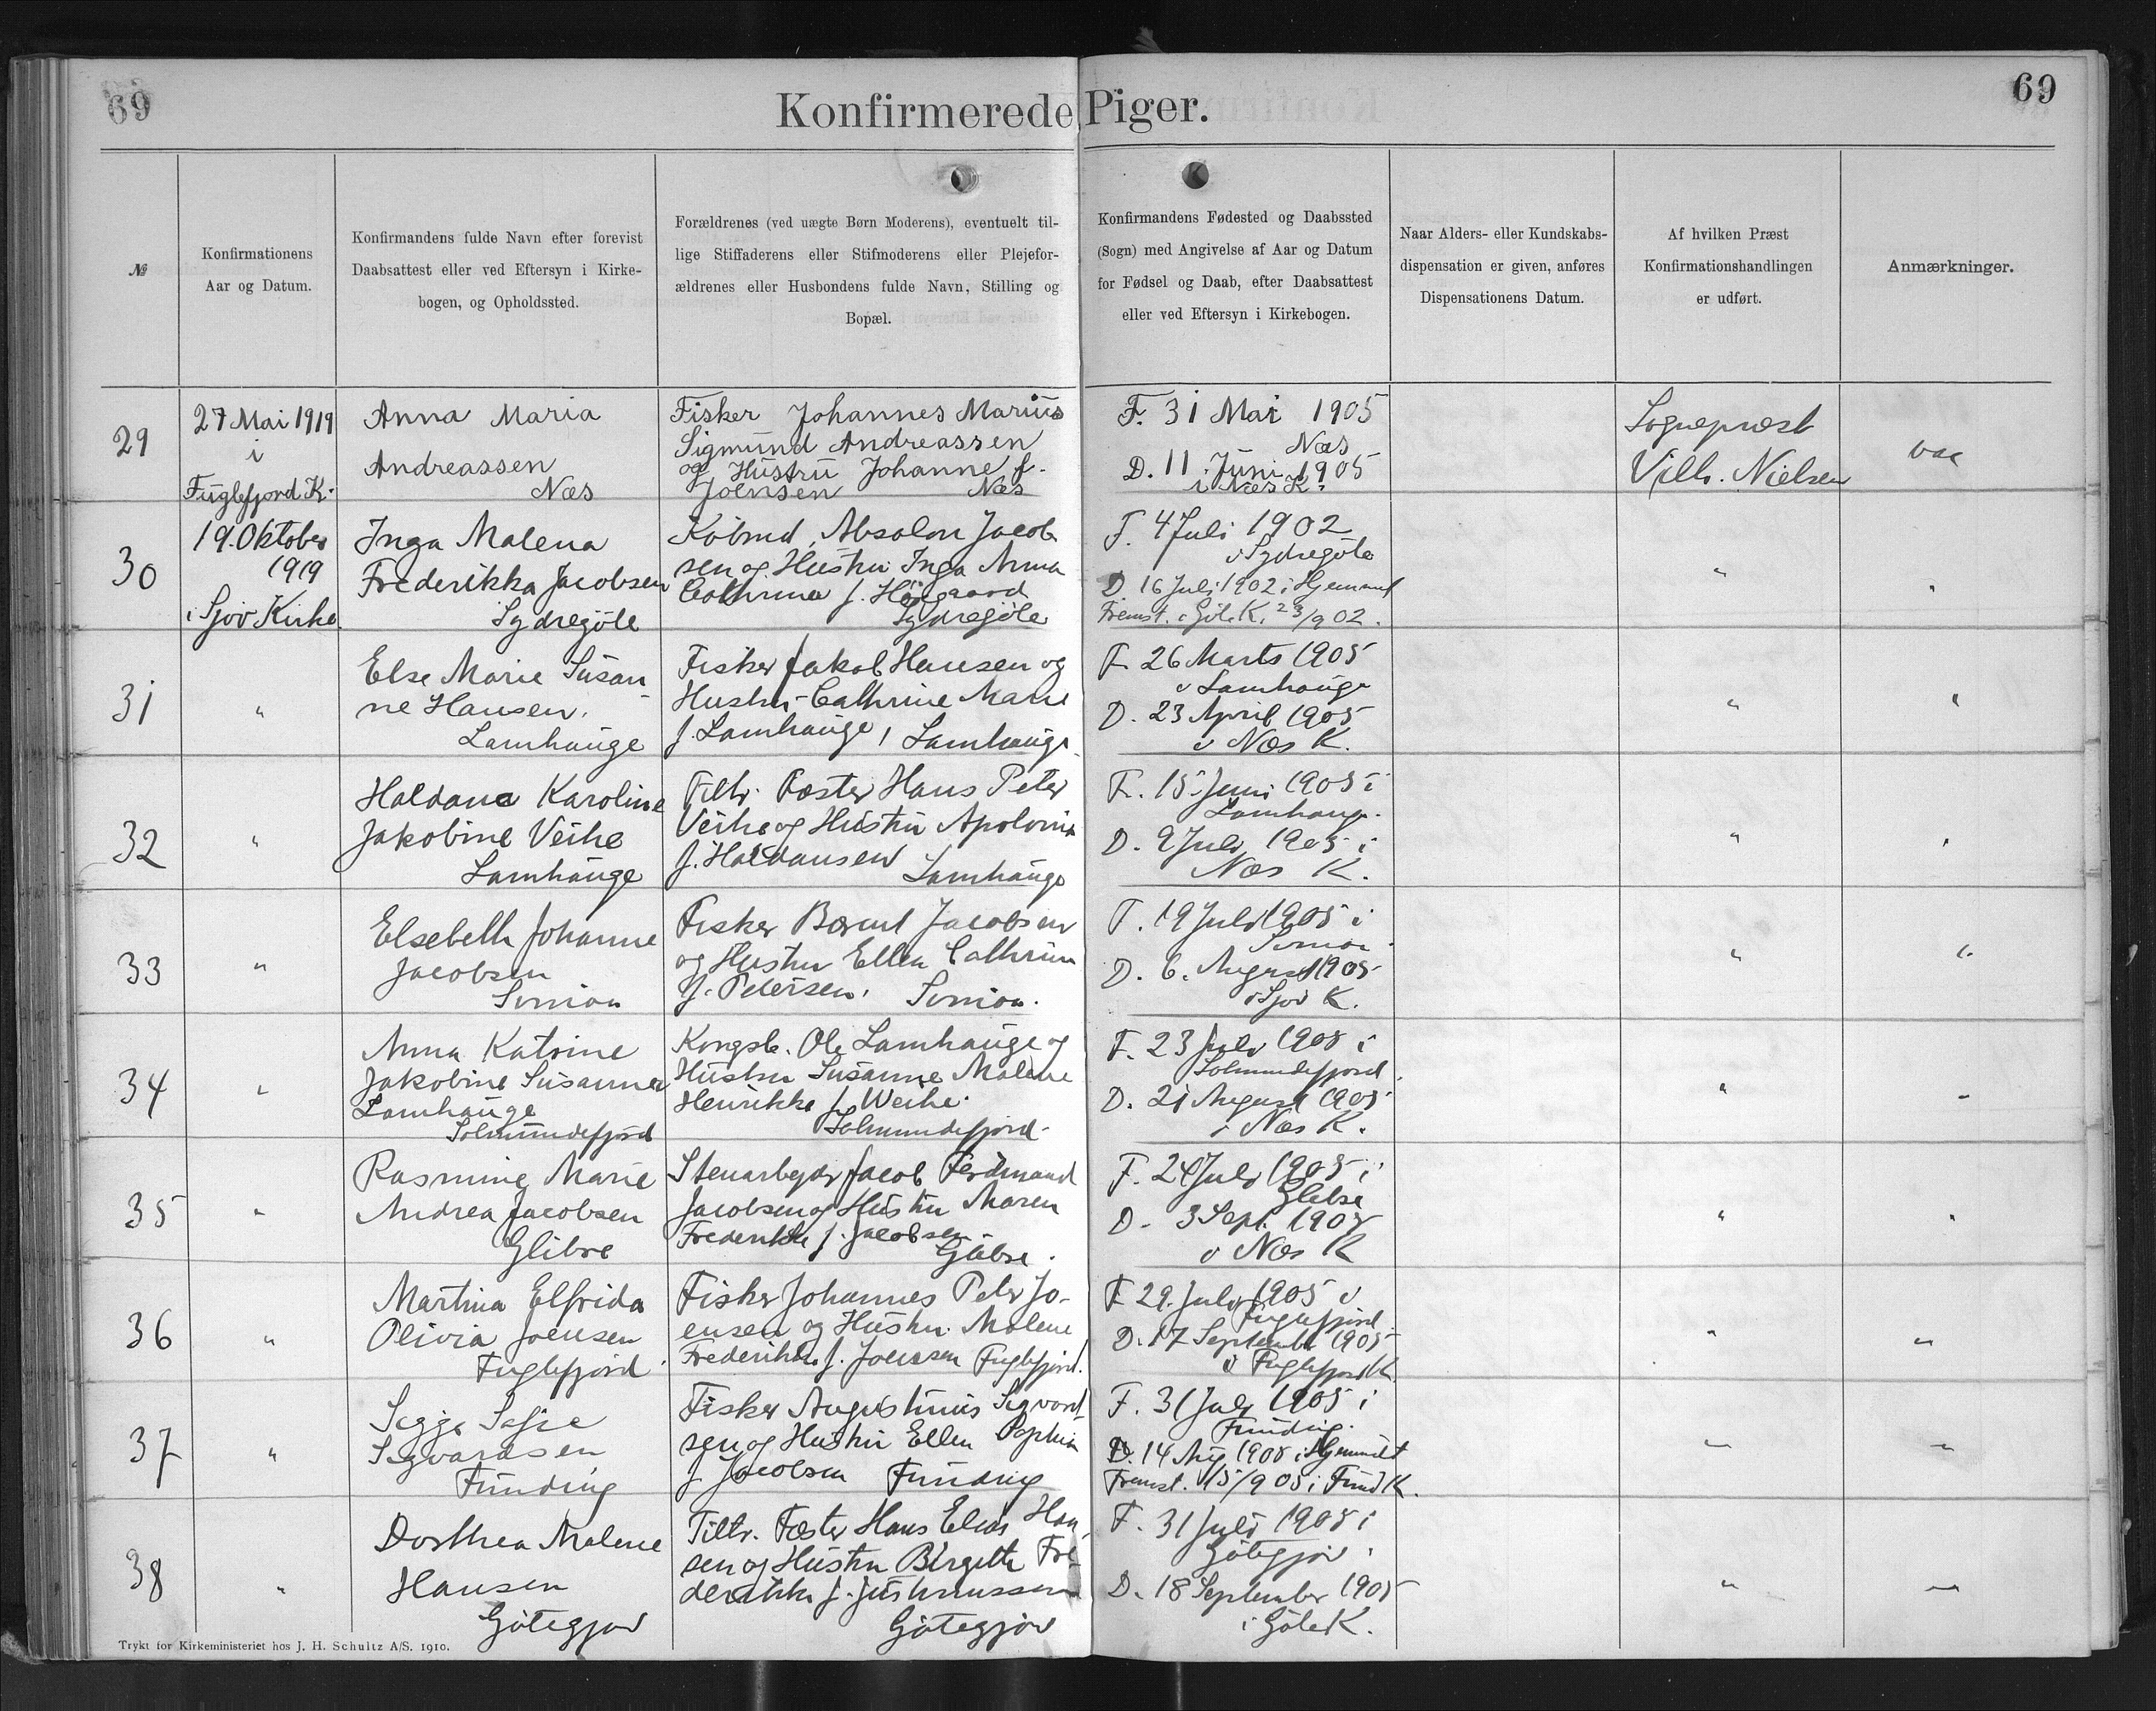 69
Konfirmerede Piger.
69
№
Konfirmationens
Aar og Datum.
Konfirmandens fulde Navn efter forevist
Daabsattest eller ved Eftersyn i Kirke-
bogen, og Opholdssted.
Forældrenes (ved uægte Børn Moderens), eventuelt til-
lige Stiffaderens eller Stifmoderens eller Plejefor-
ældrenes eller Husbondens fulde Navn, Stilling og
Bopæl.
Konfirmandens Fødested og Daabssted
(Sogn) med Angivelse af Aar og Datum
for Fødsel og Daab, efter Daabsattest
eller ved Eftersyn i Kirkebogen.
Naar Alders- eller Kundskabs-
dispensation er given, anføres
Dispensationens Datum.
Af hvilken Præst
Konfirmationshandlingen
er udført.
Anmærkninger.
29
27 Mai 1919
i
Fuglefjord K.
Anna Maria
Andreassen
Næs
Fisker Johannes Marius
Sigmund Andreassen
og Hustru Johanne f.
Joensen Næs
F. 31 Mai 1905
Næs
D. 11. Juni 1905
i Næs K.
Sognepræst
Vilh. Nielsen
vac
30
19. Oktober
1919
i Sjov Kirke
Inga Malena
Frederikka Jacobsen
Sydregöte
Köbmd. Absalon Jacob
sen og Hustru Inga Anna
Cathrine f. Höjgaard
Sydregöte
F. 4 Juli 1902
i Sydregöte
D. 16 Juli 1902 i Hjemmet
Fremst. i Göte K. 23/9 02.
"
"
31
"
Else Marie Susan
ne Hansen.
Lamhauge
Fisker Jakob Hansen og
Hustru Cathrine Marie
f. Lamhauge, Lamhauge
F. 26 Marts 1905
i Lamhauge
D. 23 April 1905
i Næs K.
"
"
32
"
Haldana Karoline
Jakobine Veihe
Lamhauge
Tiltr. Fæster Hans Peter
Veihe og Hustru Apolonia
f. Haldansen Lamhauge
F. 15 Juni 1905 i
Lamhauge.
D. 9 Juli 1905 i
Næs K.
"
"
33
"
Elsebeth Johanne
Jacobsen
Fisker Berent Jacobsen
og Hustru Ellen Cathrine
f. Petersen.
F. 19 Juli 1905 i
D. 6. August 1905
i Sjov K.
"
"
34
"
Anna Katrine
Jakobine Susanna
Lamhauge
Solmundefjord
Kongsb. Ole Lamhauge og
Hustru Susanne Malene
Henrikke f. Weihe.
Solmundefjord.
F. 23 Juli 1905 i
Solmundefjord.
D. 21 August 1905
i Næs K.
"
"
35
"
Rasmine Marie
Andrea Jacobsen
Glibre
Stenarbejder Jacob Ferdinand
Jacobsen og Hustru Maren
Frederikke f. Jacobsen
Glibre.
F. 24 Juli 1905 i
Glibre
D. 3 Sept. 1905
i Næs K
"
"
36
"
Martina Elfrida
Olivia Joensen
Fuglefjord
Fisker Johannes Peter Jo-
ensen og Hustru Malene
Frederikke f. Joensen Fuglefjord.
F. 29. Juli 1905 i
Fuglefjord
D. 17 September 1905
i Fuglefjord K.
"
"
37
"
Sigga Sofie
Sigvardsen
Funding
Fisker Augustinus Sigvard
sen og Hustru Ellen Sophia
f. Jacobsen Funding
F. 31 Juli 1905 i
Funding.
D. 14 Aug 1905 i Hjemmet
Fremst. 15/9 05 i Fund K.
"
"
38
"
Dorthea Malene
Hansen
Götegjov
Tiltr. Fæster Hans Elias Han
sen og Hustru Birgitte Fre
derikke f. Justinussen
Götegjov
F. 31 Juli 1905 i
Götegjov.
D. 18 September 1905
i Göte K.
"
"
Trykt for Kirkeministeriet hos J. H. Schultz A/S. 1910.